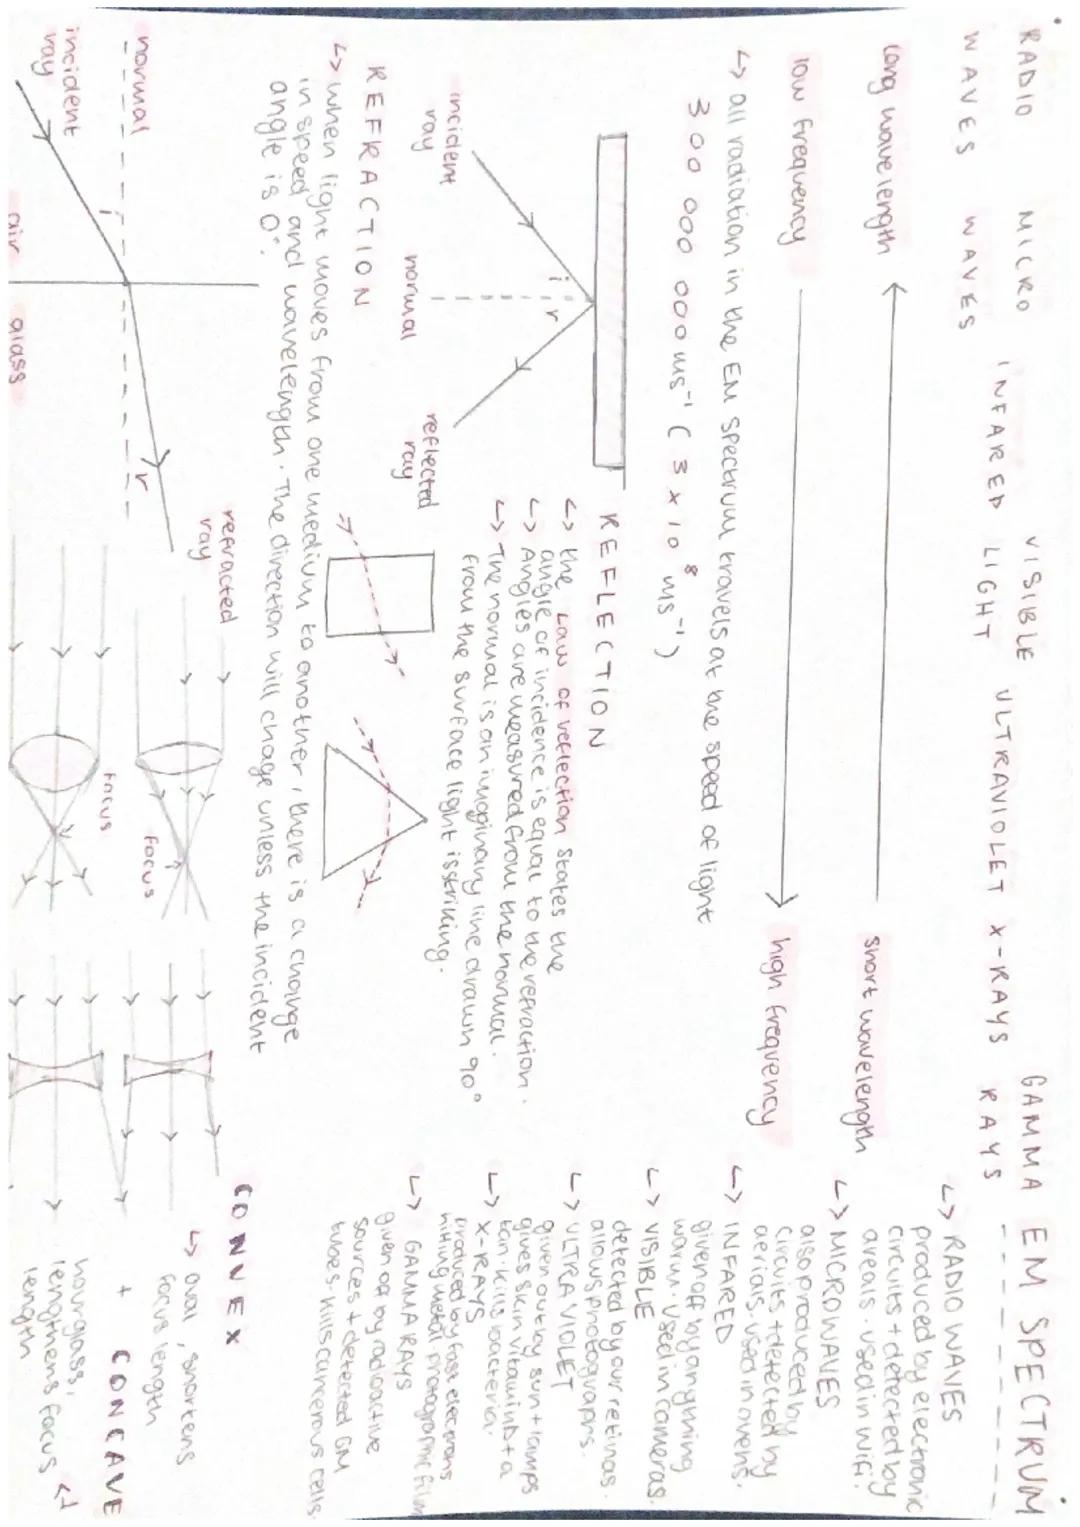 EM SPECTRUM
RADIO WAVES
MICRO WAVES
INFARED
VISIBLE LIGHT
ULTRAVIOLET
X-RAYS
GAMMA RAYS
long wavelength
short wavelength
low frequency
high frequency
↳ all radiation in the EM spectrum travels at the speed of light
300 000 000 ms⁻¹ (3 x 10⁸ ms⁻¹)
↳ RADIO WAVES
produced by electronic
circuits + detected by
areals. used in wifi
↳ MICROWAVES
also produced by
circuits + detected by
aerials. used in ovens.
↳ INFARED
given off by anything
warm. Used in cameras.
↳ VISIBLE
detected by our retinas.
allows photograps.
↳ ULTRA VIOLET
given out by sun + lamps
gives skin vitamin D + a
tan. kills bacteria.
↳ X-RAYS
produced by fast electrons
hitting metal. photographic film
↳ GAMMA RAYS
given off by radioactive
sources + detected GM
tubes. kills cancerous cells.
REFLECTION
↳ the Law of reflection states the
angle of incidence is equal to the refraction.
↳ Angles are measured from the normal.
↳ The normal is an imaginary line drawn 90°
from the surface light is striking.
incident
ray
i
r
normal
reflected
ray
REFRACTION
↳ when light moves from one medium to another, there is a change
in speed and wavelength. The direction will change unless the incident
angle is 0°.
normal
incident
ray
i
r
refracted
ray
air
glass
focus
focus
CONVEX
↳ oval, shortens
focus length
+ CONCAVE
hourglass, ↲
lengthens focus
length